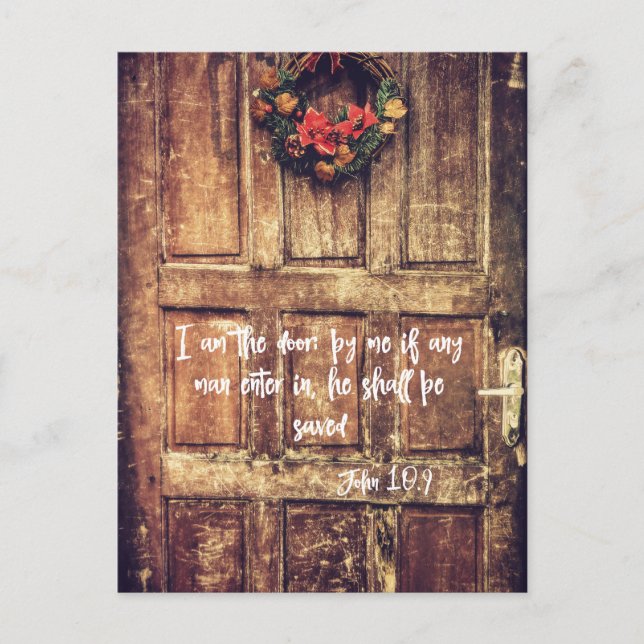 I am the door: by me if any
man enter in, he shall be
saved
John 10.9